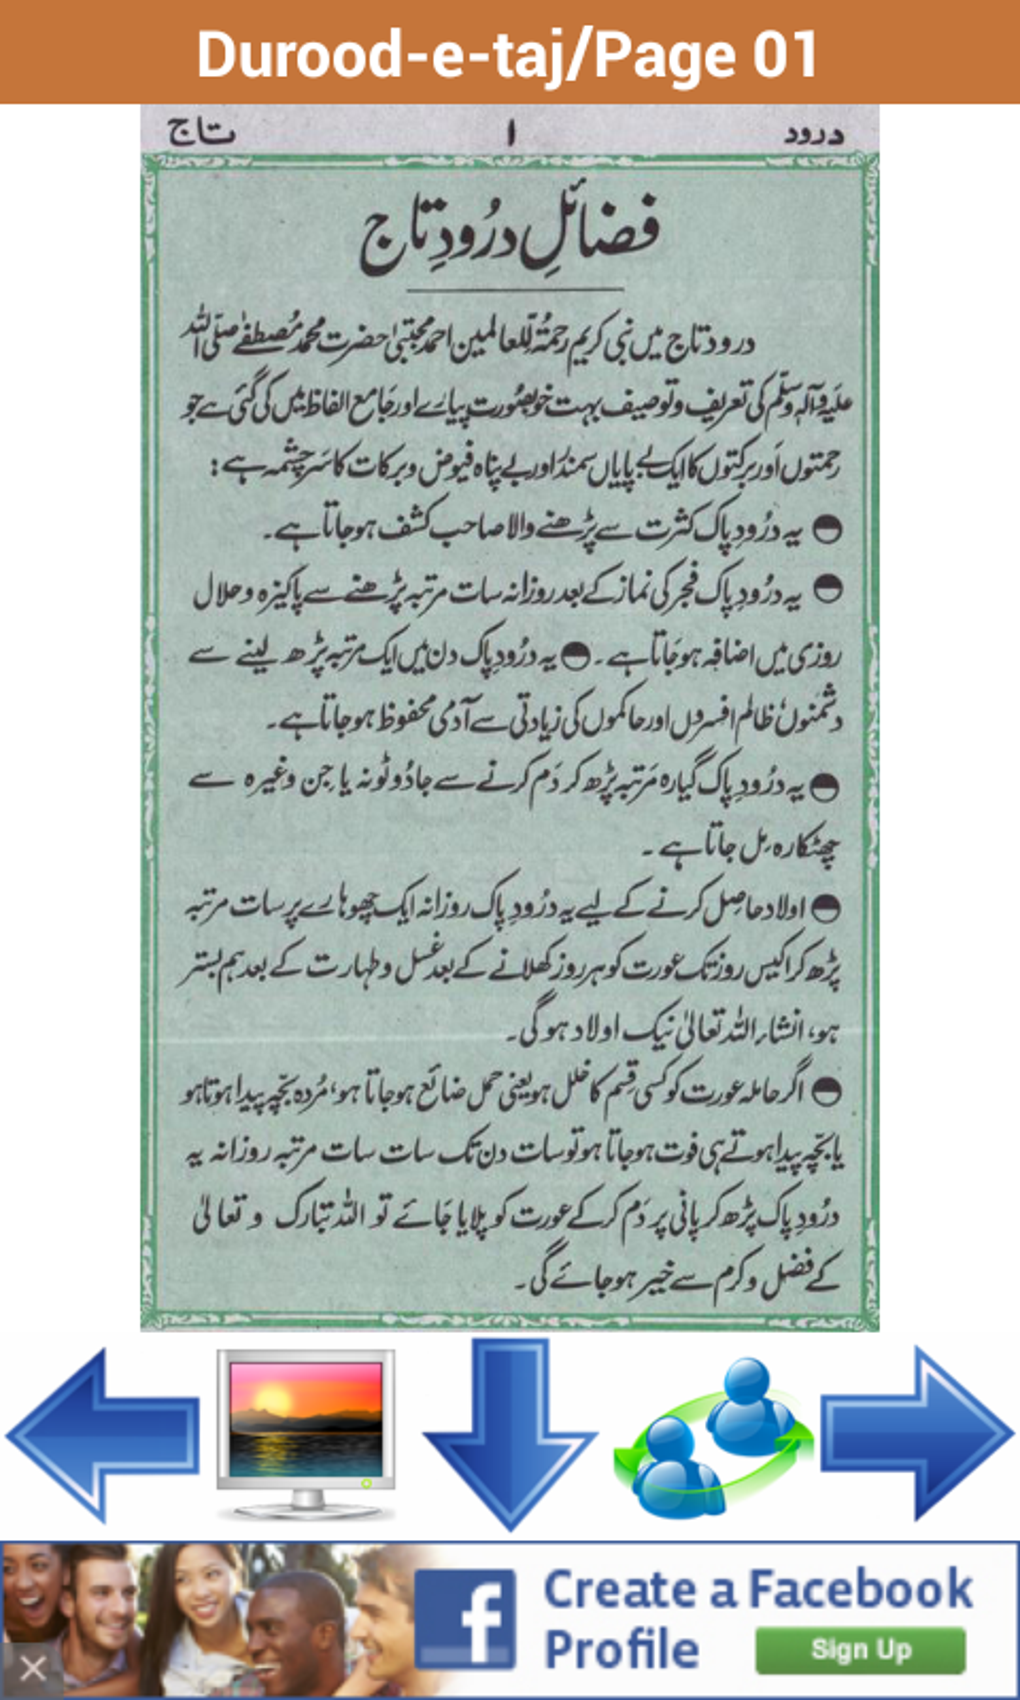 Durood-e-taj/Page 01
درود ۱ تاج
فضائلِ درُودِ تاج
درود تاج میں نبی کریم رحمۃٌ للعالمین احمد مجتبیٰ حضرت محمد مُصطفٰے صلّی اللہ
علیہ وآلہٖ وسلّم کی تعریف و توصیف بہت خوبصُورت پیارے اور جَامع الفاظ میں کی گئی ہے جو
رحمتوں اَور برکتوں کا ایک بے پایاں سمندُر اور بے پناہ فیوض و برکات کا سَرچشمہ ہے :
یہ درُودِ پاک کثرت سے پڑھنے والا صاحب کشف ہو جاتا ہے۔
یہ درُودِ پاک فجر کی نماز کے بعد روزانہ سات مرتبہ پڑھنے سے پاکیزہ و حلال
روزی میں اضافہ ہو جَاتا ہے۔ یہ درُود پاک دن میں ایک مرتبہ پڑھ لینے سے
دشمنوں ظالم افسروں اور حاکموں کی زیادتی سے آدمی محفوظ ہو جاتا ہے۔
یہ درُودِ پاک گیارہ مَرتبہ پڑھ کر دَم کرنے سے جادُو ٹونہ یا جِن وغیرہ سے
چھٹکارہ مِل جاتا ہے ۔
اولاد حاصِل کرنے کے لیے یہ درُودِ پاک روزانہ ایک چھوہارے پر سات مرتبہ
پڑھ کر اکیس روز تک عورت کو ہر روز کھلانے کے بعد غسل و طہارت کے بعد ہم بستر
ہو، انشاء اللہ تعالیٰ نیک اولاد ہو گی۔
اگر حاملہ عورت کو کسی قِسم کا خلل ہو یعنی حمل ضائع ہو جاتا ہو، مُردہ بچّہ پیدا ہوتا ہو
یا بچّہ پیدا ہوتے ہی فوت ہو جاتا ہو تو سات دن تک سات سات مرتبہ روزانہ یہ
درُودِ پاک پڑھ کر پانی پر دَم کر کے عورت کو پلایا جَائے تو اللہ تبارک و تعالیٰ
کے فضل و کرم سے خیر ہو جائے گی۔
f
Create a Facebook
Profile
Sign Up